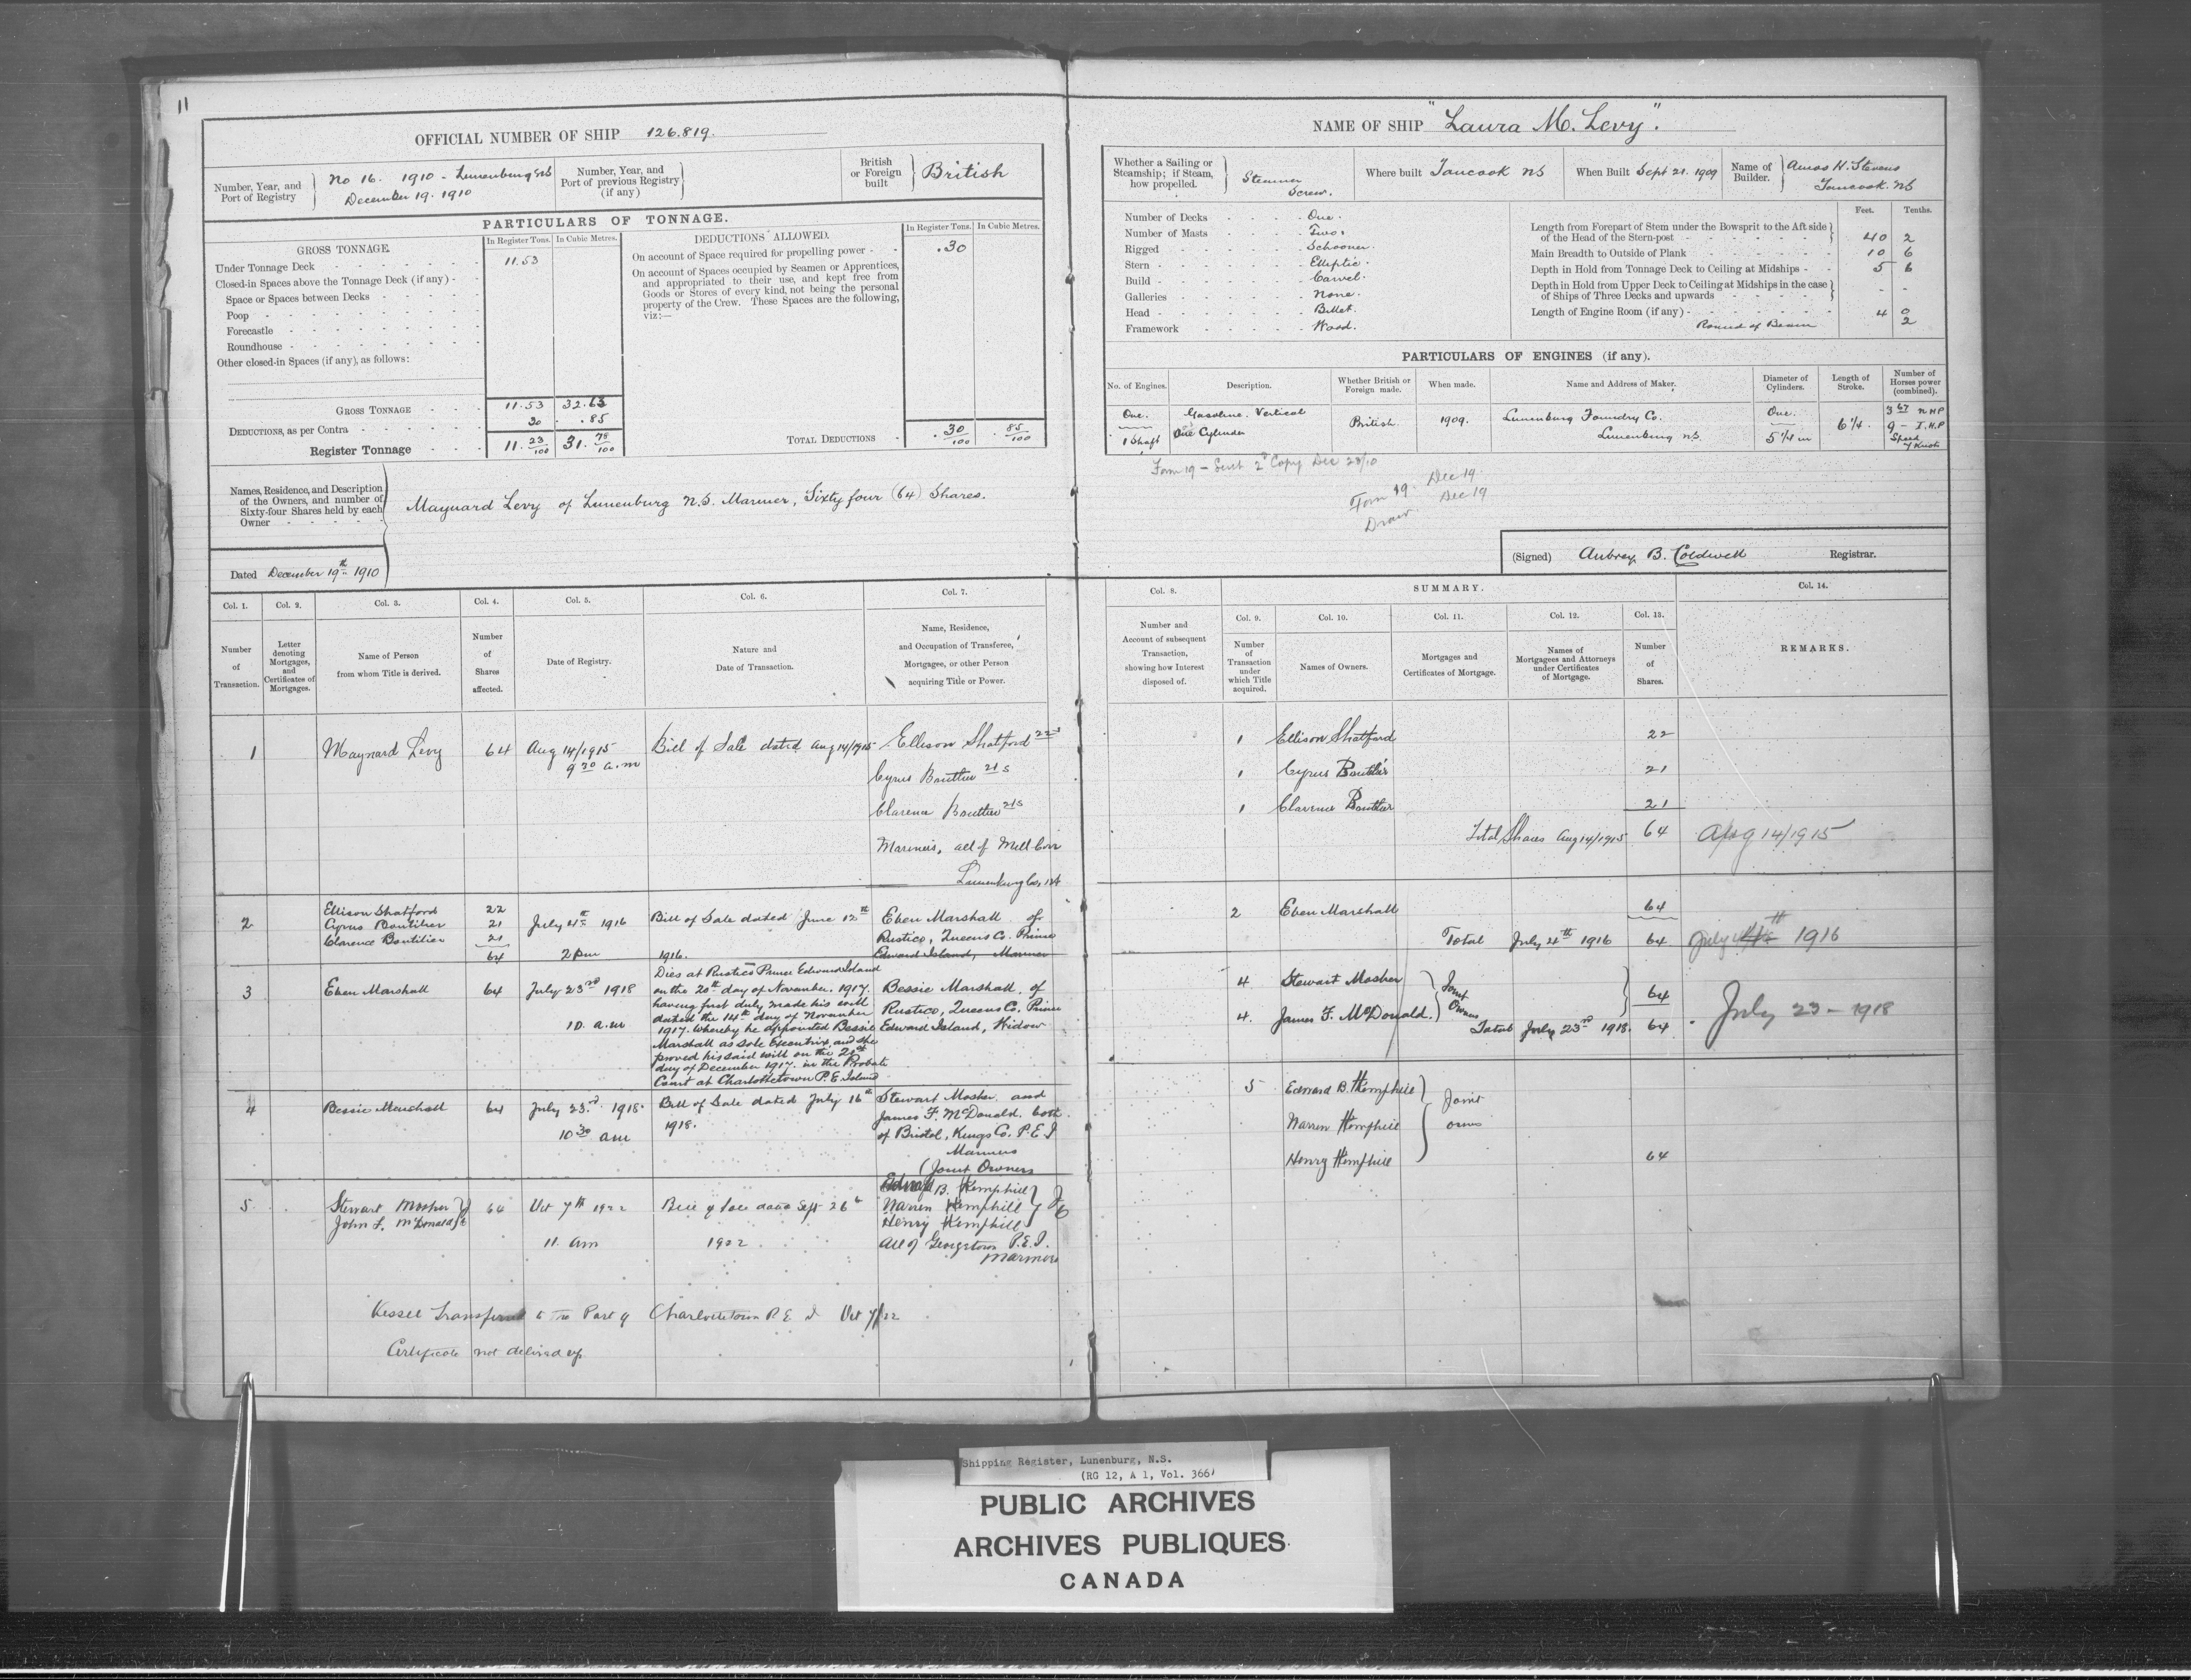 11
OFFICIAL NUMBER OF SHIP 126.819.
Number, Year, and Port of Registry } No 16. 1910 - Lunenburg NS
December 19. 1910
Number, Year, and Port of previous Registry (if any) }
British or Foreign built } British
PARTICULARS OF TONNAGE.
GROSS TONNAGE.
In Register Tons.
In Cubic Metres.
Under Tonnage Deck 11.53
Closed-in Spaces above the Tonnage Deck (if any) -
Space or Spaces between Decks
Poop
Forecastle
Roundhouse
Other closed-in Spaces (if any), as follows:
GROSS TONNAGE 11.53 32.63
DEDUCTIONS, as per Contra 30 .85
Register Tonnage 11. 23/100 31. 78/100
DEDUCTIONS ALLOWED.
In Register Tons.
In Cubic Metres.
On account of Space required for propelling power - .30
On account of Spaces occupied by Seamen or Apprentices,
and appropriated to their use, and kept free from
Goods or Stores of every kind, not being the personal
property of the Crew. These Spaces are the following,
viz:—
TOTAL DEDUCTIONS . 30/100 . 85/100
Names, Residence, and Description
of the Owners, and number of
Sixty-four Shares held by each
Owner
Maynard Levy of Lunenburg N.S. Mariner, Sixty four (64) Shares.
Dated December 19th 1910
NAME OF SHIP "Laura M. Levy".
Whether a Sailing or Steamship; if Steam, how propelled. } Steamer Screw.
Where built Tancook NS
When Built Sept 21. 1909
Name of Builder. } Amos H. Stevens
Tancook. NS
Number of Decks One.
Number of Masts Two.
Rigged Schooner.
Stern Elliptic.
Build Carvel.
Galleries None.
Head Billet.
Framework Wood.
Feet. Tenths.
Length from Forepart of Stem under the Bowsprit to the Aft side
of the Head of the Stern-post 40 2
Main Breadth to Outside of Plank 10 6
Depth in Hold from Tonnage Deck to Ceiling at Midships - 5 6
Depth in Hold from Upper Deck to Ceiling at Midships in the case
of Ships of Three Decks and upwards - -
Length of Engine Room (if any) 4 0
Round of Beam 2
PARTICULARS OF ENGINES (if any).
No. of Engines.
Description.
Whether British or Foreign made.
When made.
Name and Address of Maker.
Diameter of Cylinders.
Length of Stroke.
Number of Horses power (combined).
One.
1 Shaft
Gasoline. Vertical
One Cylinder
British
1909.
Lunenburg Foundry Co.
Lunenburg NS.
One.
5 1/4 in
6 1/4.
3 67 NHP
9 - I.H.P
Speed
7 Knots
Form 19 - Sent 2nd Copy Dec 28/10
Form 19. Dec 19.
Draw. Dec 19
(Signed) Aubrey B. Coldwell Registrar.
Col. 1. Number of Transaction.
Col. 2. Letter denoting Mortgages, and Certificates of Mortgages.
Col. 3. Name of Person from whom Title is derived.
Col. 4. Number of Shares affected.
Col. 5. Date of Registry.
Col. 6. Nature and Date of Transaction.
Col. 7. Name, Residence, and Occupation of Transferee, Mortgagee, or other Person acquiring Title or Power.
1 Maynard Levy 64 Aug 14/1915 Bill of Sale dated Aug 14/1915 Ellison Shatford 22s
9 30 a.m
Cyrus Boutlier 21s
Clarence Boutlier 21s
Mariners, all of Mill Cove
Lunenburg Co, NS
2 Ellison Shatford 22 July 4th 1916 Bill of Sale dated June 12th Eben Marshall of
Cyrus Boutilier 21 Rustico, Queens Co. Prince
Clarence Boutilier 21
64 2 pm 1916. Edward Island, Mariner
3 Eben Marshall 64 July 23rd 1918
10. a.m
Dies at Rustico Prince Edward Island
on the 20th day of November. 1917.
having first duly made his will
dated the 14th day of November
1917. whereby he appointed Bessie
Marshall as Sole Executrix, and she
proved his said will on the 20th
day of December 1917. in the Probate
Court at Charlottetown P.E Island
Bessie Marshall, of
Rustico, Queens Co. Prince
Edward Island, Widow
4 Bessie Marshall 64 July 23rd 1918. Bill of Sale dated July 16th
10 30 am 1918.
Stewart Mosher and
James F. McDonald. both
of Bristol, Kings Co. P.E.I
Mariners
(Joint Owners
5. Stewart Mosher } J
John F. McDonald } O 64 Oct 7th 1922 Bill of Sale dated Sept 26th
11. am 1922
Edward B. Hemphill
Warren Hemphill
Henry Hemphill
} JO
All of Georgetown P.E.I.
Mariners
Vessel Transferred to the Port of Charlottetown P.E.I Oct 7/22
Certificate not delivered up
Col. 8. Number and Account of subsequent Transaction, showing how Interest disposed of.
SUMMARY.
Col. 9. Number of Transaction under which Title acquired.
Col. 10. Names of Owners.
Col. 11. Mortgages and Certificates of Mortgage.
Col. 12. Names of Mortgagees and Attorneys under Certificates of Mortgage.
Col. 13. Number of Shares.
Col. 14.
REMARKS.
1 Ellison Shatford 22
1 Cyrus Boutlier 21
1 Clarence Boutlier 21
Total Shares Aug 14/1915 64 Aug 14/1915
2 Eben Marshall 64
Total July 4th 1916 64 July 4th 1916
4 Stewart Mosher
4. James F. McDonald. } Joint Owners 64
Total July 23rd 1918. 64. July 23 - 1918
5 Edward B. Hemphill
Warren Hemphill
Henry Hemphill
} Joint owners
64
Shipping Register, Lunenburg, N.S.
(RG 12, A 1, Vol. 366)
PUBLIC ARCHIVES
ARCHIVES PUBLIQUES
CANADA